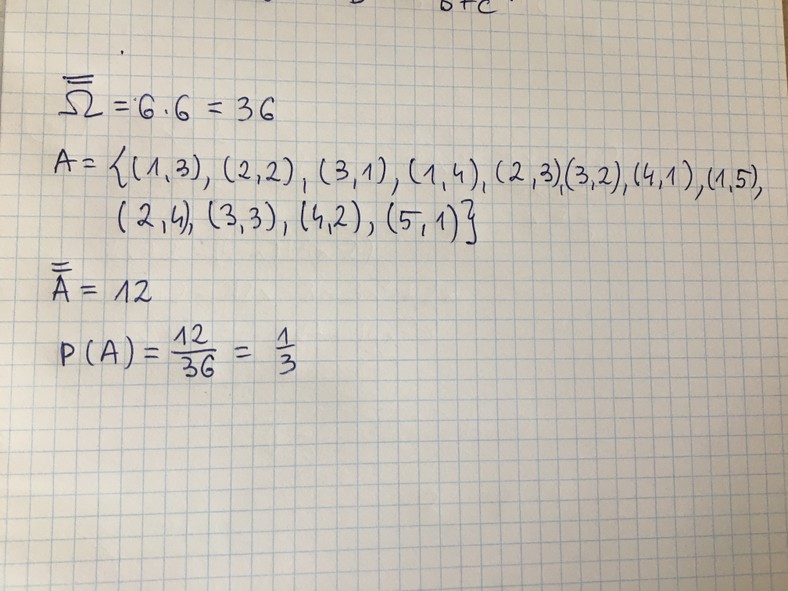 b+c
Ω̿ = 6 · 6 = 36
A = {(1,3), (2,2), (3,1), (1,4), (2,3), (3,2), (4,1), (1,5),
(2,4), (3,3), (4,2), (5,1)}
A̿ = 12
P(A) = 12/36 = 1/3